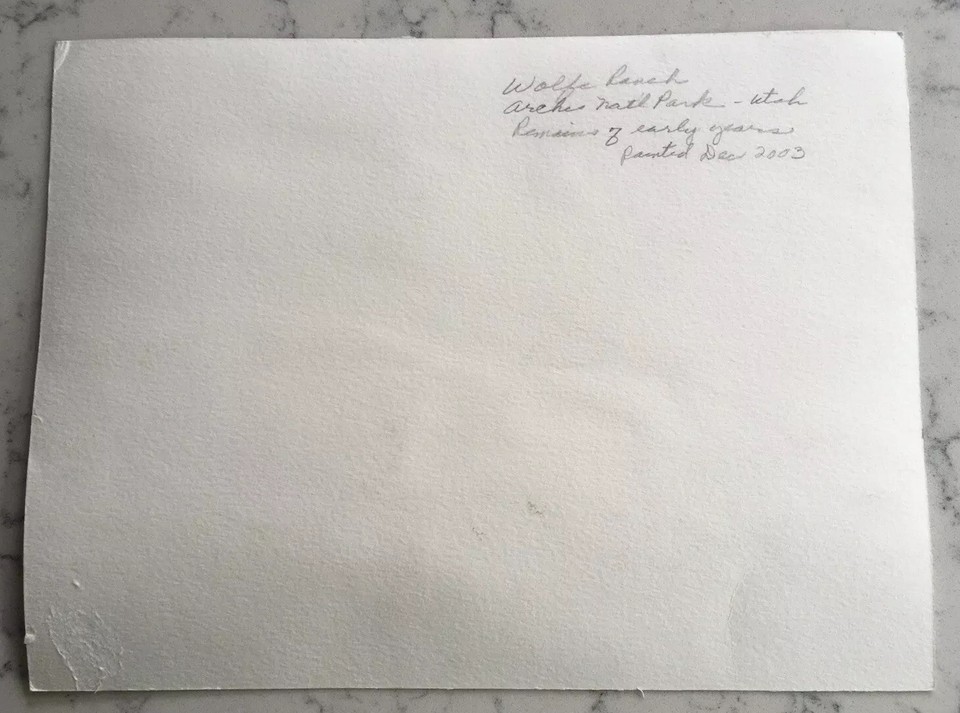 Wolfe Ranch
Arches Natl Park - Utah
Remains of early years
Painted Dec 2003